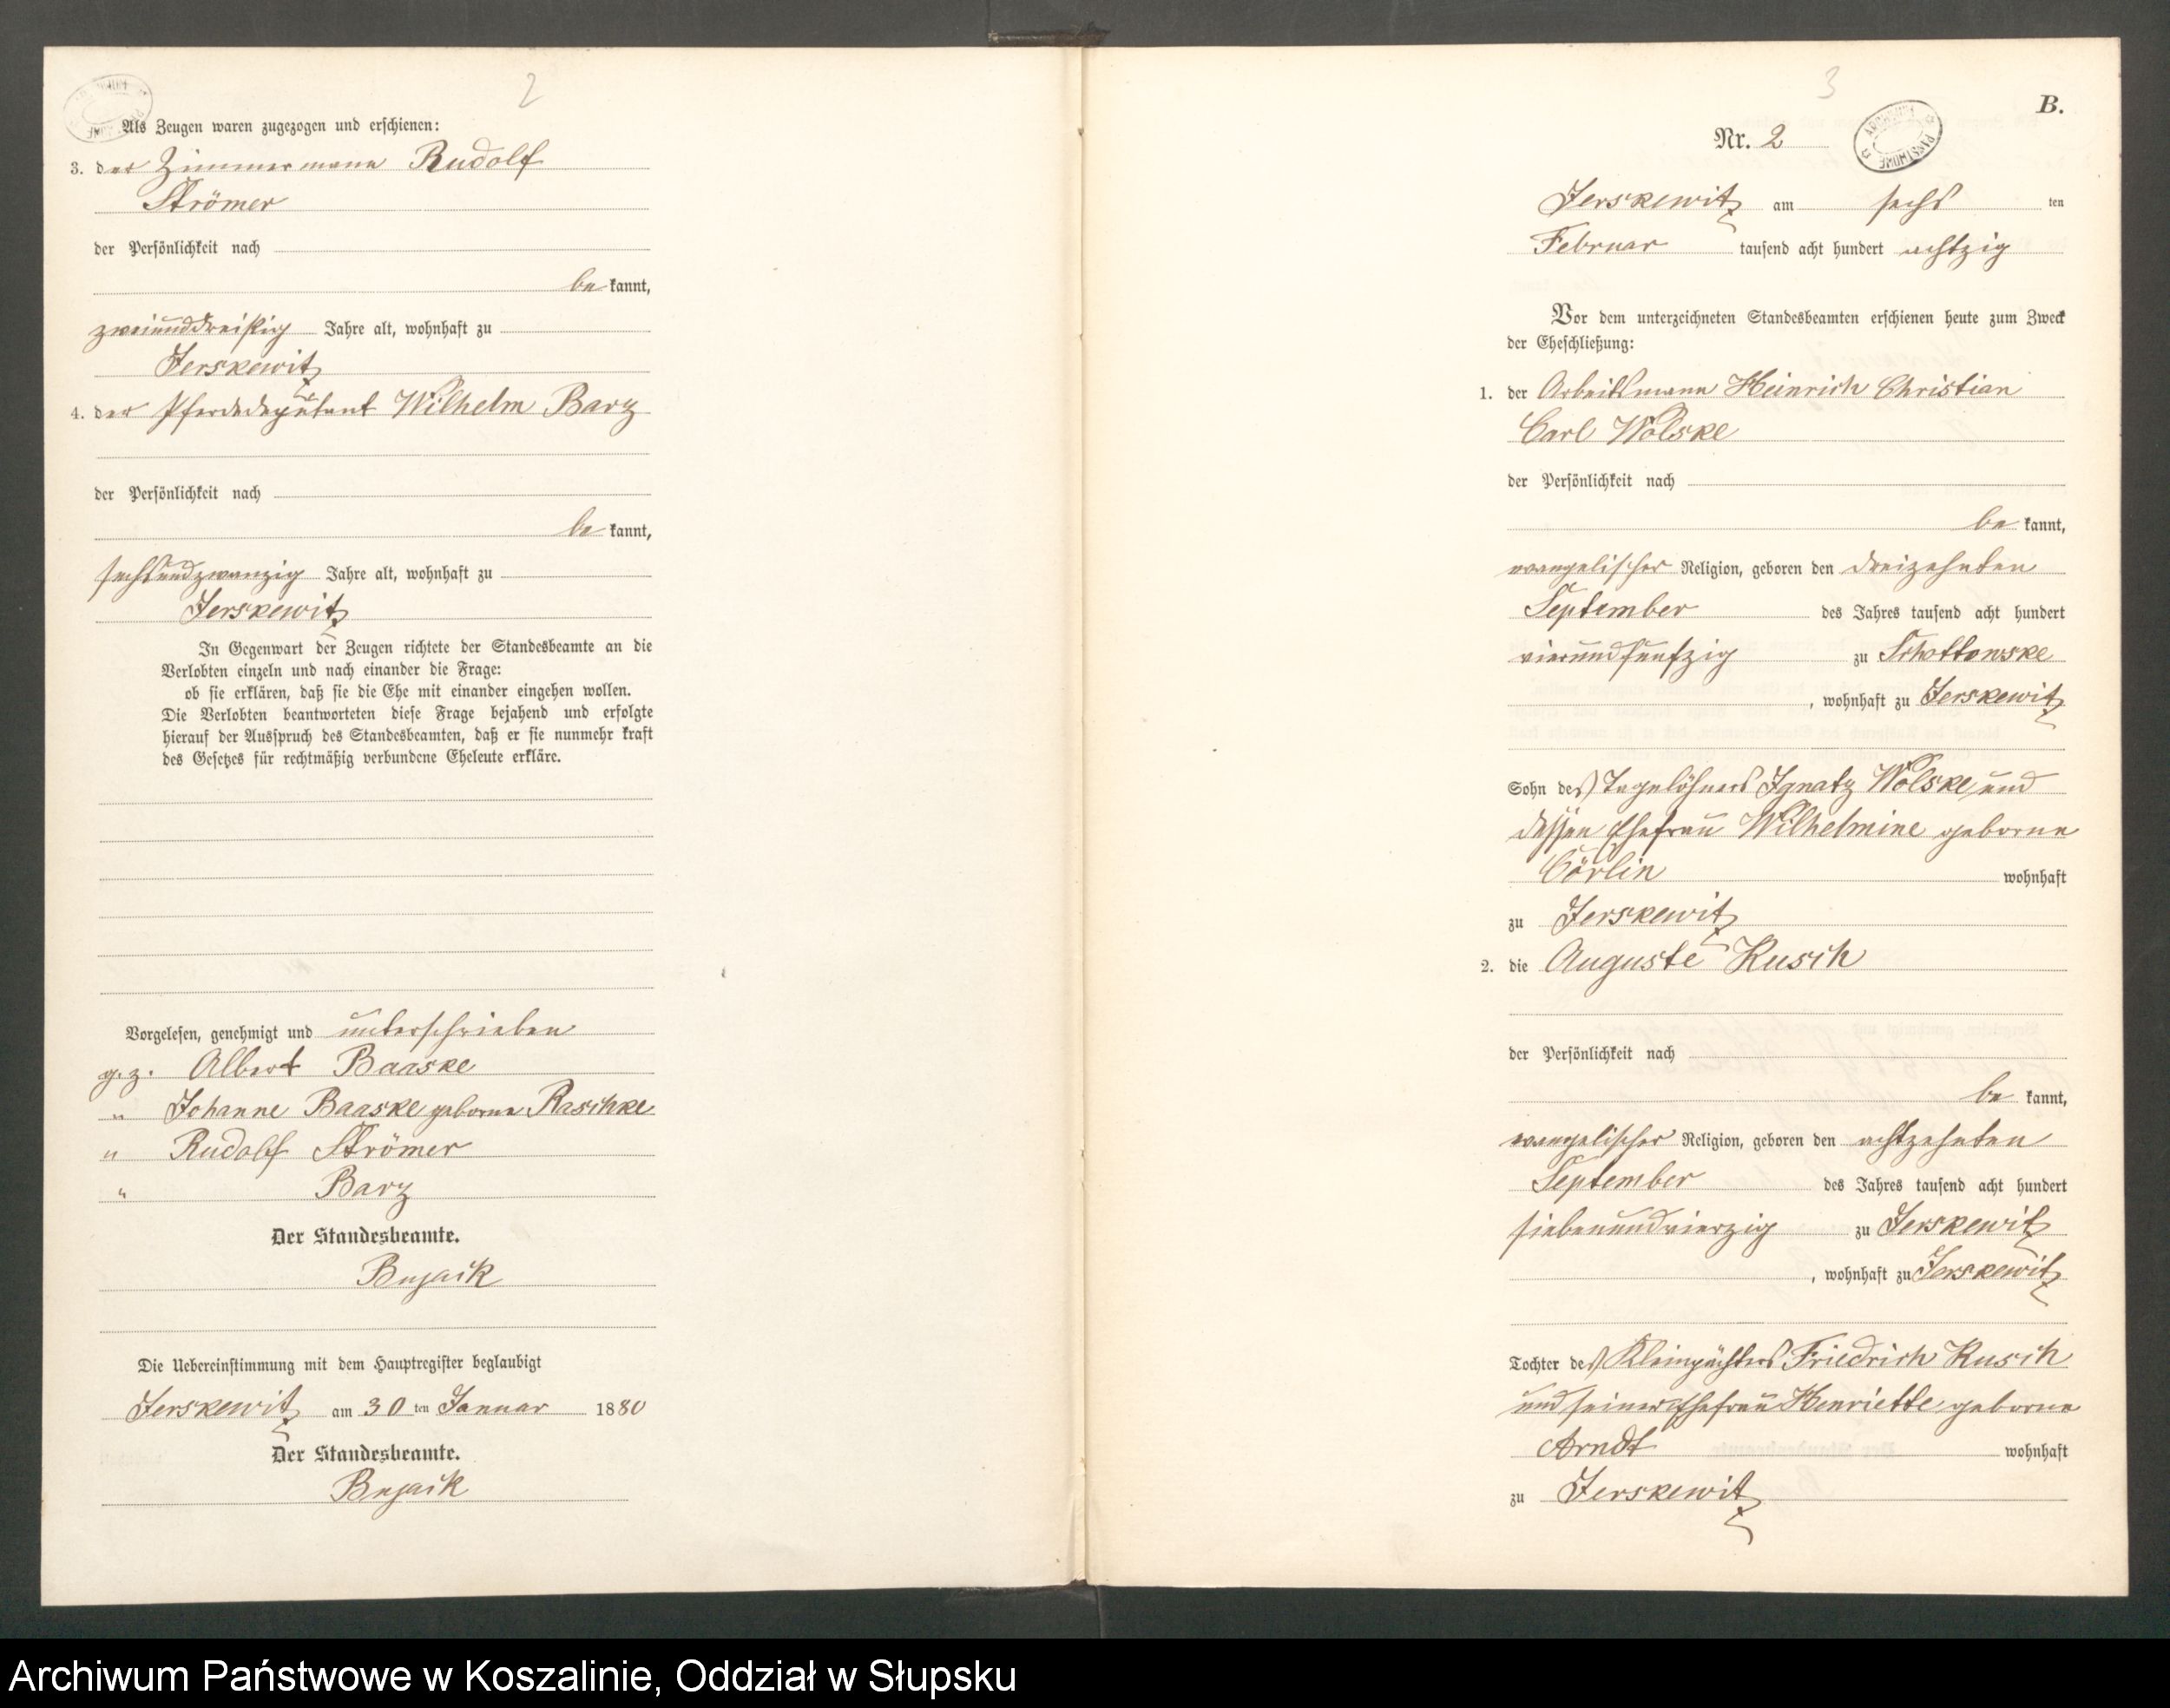 2
Als Zeugen waren zugezogen und erschienen:
3. der Zimmermann Rudolf
Strömer
der Persönlichkeit nach
be kannt,
zweiunddreißig Jahre alt, wohnhaft zu
Jerskewitz
4. der Pferdedeputant Wilhelm Barz
der Persönlichkeit nach
be kannt,
sechsundzwanzig Jahre alt, wohnhaft zu
Jerskewitz
In Gegenwart der Zeugen richtete der Standesbeamte an die
Verlobten einzeln und nach einander die Frage:
ob sie erklären, daß sie die Ehe mit einander eingehen wollen.
Die Verlobten beantworteten diese Frage bejahend und erfolgte
hierauf der Ausspruch des Standesbeamten, daß er sie nunmehr kraft
des Gesetzes für rechtmäßig verbundene Eheleute erkläre.
Vorgelesen, genehmigt und unterschrieben
gez. Albert Baaske
" Johanne Baaske geborne Raschke
" Rudolf Strömer
" Barz
Der Standesbeamte.
Bujack
Die Uebereinstimmung mit dem Hauptregister beglaubigt
Jerskewitz am 30 ten Januar 1880
Der Standesbeamte.
Bujack
3
B.
Nr. 2
ARCHIWUM PAŃSTWOWE
Jerskewitz am sechs ten
Februar tausend acht hundert achtzig
Vor dem unterzeichneten Standesbeamten erschienen heute zum Zweck
der Eheschließung:
1. der Arbeitsmann Heinrich Christian
Carl Wolske
der Persönlichkeit nach
be kannt,
evangelischer Religion, geboren den dreizehnten
September des Jahres tausend acht hundert
vierundfunfzig zu Schottowske
, wohnhaft zu Jerskewitz
Sohn des Tagelöhners Ignatz Wolske und
dessen Ehefrau Wilhelmine geborne
Cörlin wohnhaft
zu Jerskewitz
2. die Auguste Kusch
der Persönlichkeit nach
be kannt,
evangelischer Religion, geboren den achtzehnten
September des Jahres tausend acht hundert
siebenundvierzig zu Jerskewitz
, wohnhaft zu Jerskewitz
Tochter des Kleinpächters Friedrich Kusch
und seiner Ehefrau Henriette geborne
Arndt wohnhaft
zu Jerskewitz
Archiwum Państwowe w Koszalinie, Oddział w Słupsku